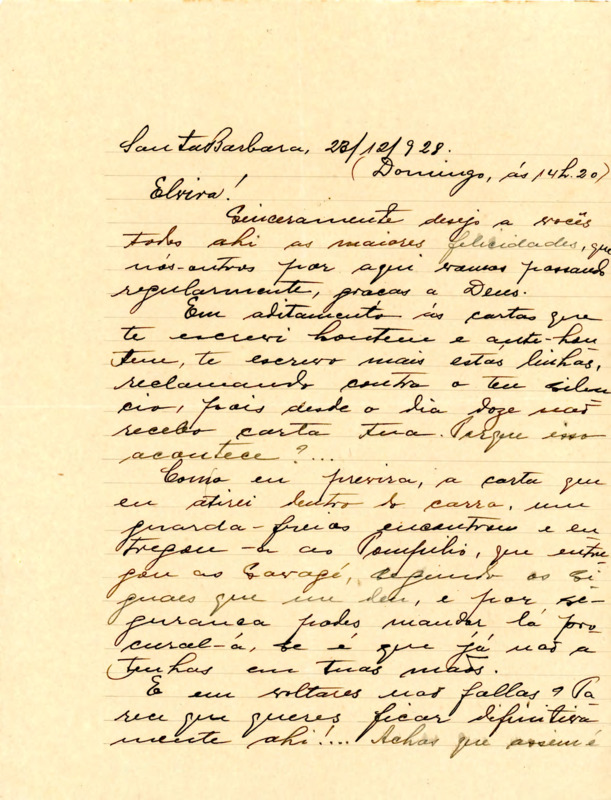 Santa Barbara, 23/12/928.
(Domingo, ás 14h.20)
Elvira!
Sinceramente desejo a vocês
todos ahi as maiores felicidades, que
nós-outros por aqui vamos passando
regularmente, graças a Deus.
Em aditamento ás cartas que
te escrevi hontem e ante-hon
tem, te escrevo mais estas linhas,
reclamando contra o teu silen
cio, pois desde o dia doze não
recebo carta tua. Porque isso
acontece?....
Como eu previra, a carta que
eu atirei dentro do carro, um
guarda-freios encontrou e en
tregou-a ao Pompilio, que entre
gou ao Savagé, segundo os si
gnaes que me deu, e por se
gurança podes mandar lá pro
cural-á, se é que já não a
tenhas em tuas mãos.
E em voltares não fallas? Pa
rece que queres ficar difinitiva
mente ahi!... Achas que assim é